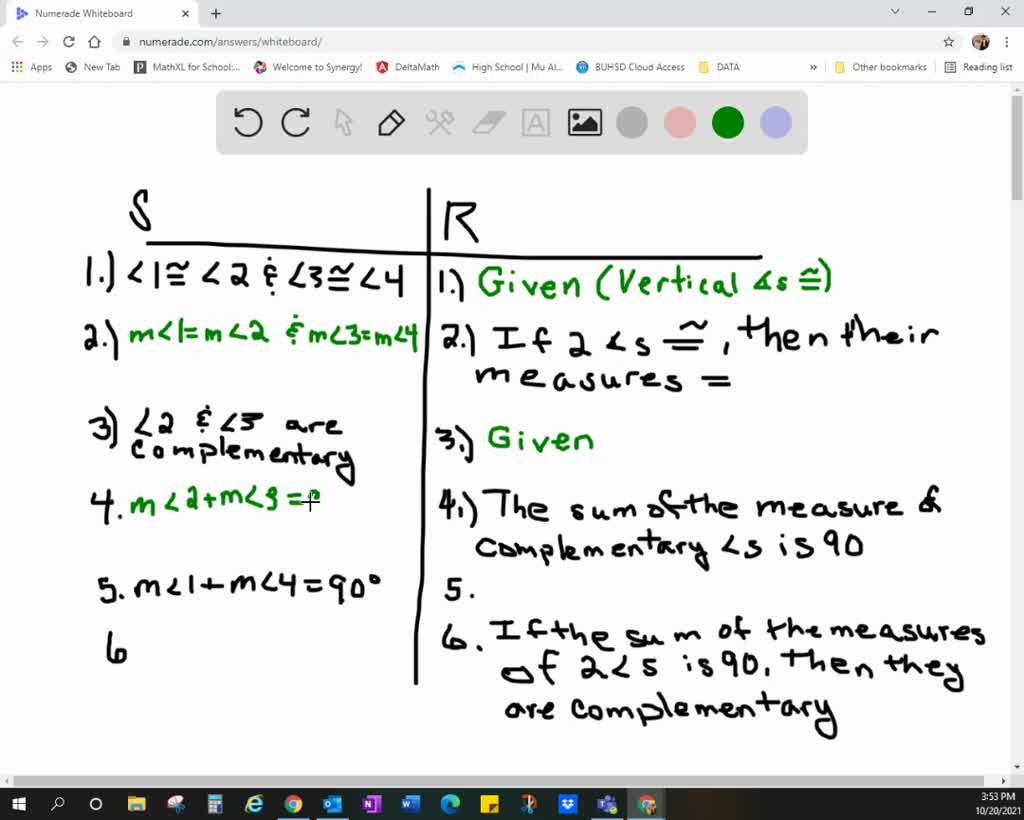 Numerade Whiteboard
numerade.com/answers/whiteboard/
Apps New Tab MathXL for School:... Welcome to Synergy! DeltaMath High School | Mu Al... BUHSD Cloud Access DATA » Other bookmarks Reading list
A
S R
1.) <1≅<2 & <3≅<4 1.) Given (Vertical ∡s ≅)
2.) m<1=m<2 & m<3=m<4 2.) If 2 ∡s ≅, then their
measures =
3) <2 & <3 are 3.) Given
complementary
4. m<2+m<3= 4.) The sum of the measure of
complementary <s is 90
5. m<1+m<4=90° 5.
6 6. If the sum of the measures
of 2<s is 90, then they
are complementary
3:53 PM
10/20/2021